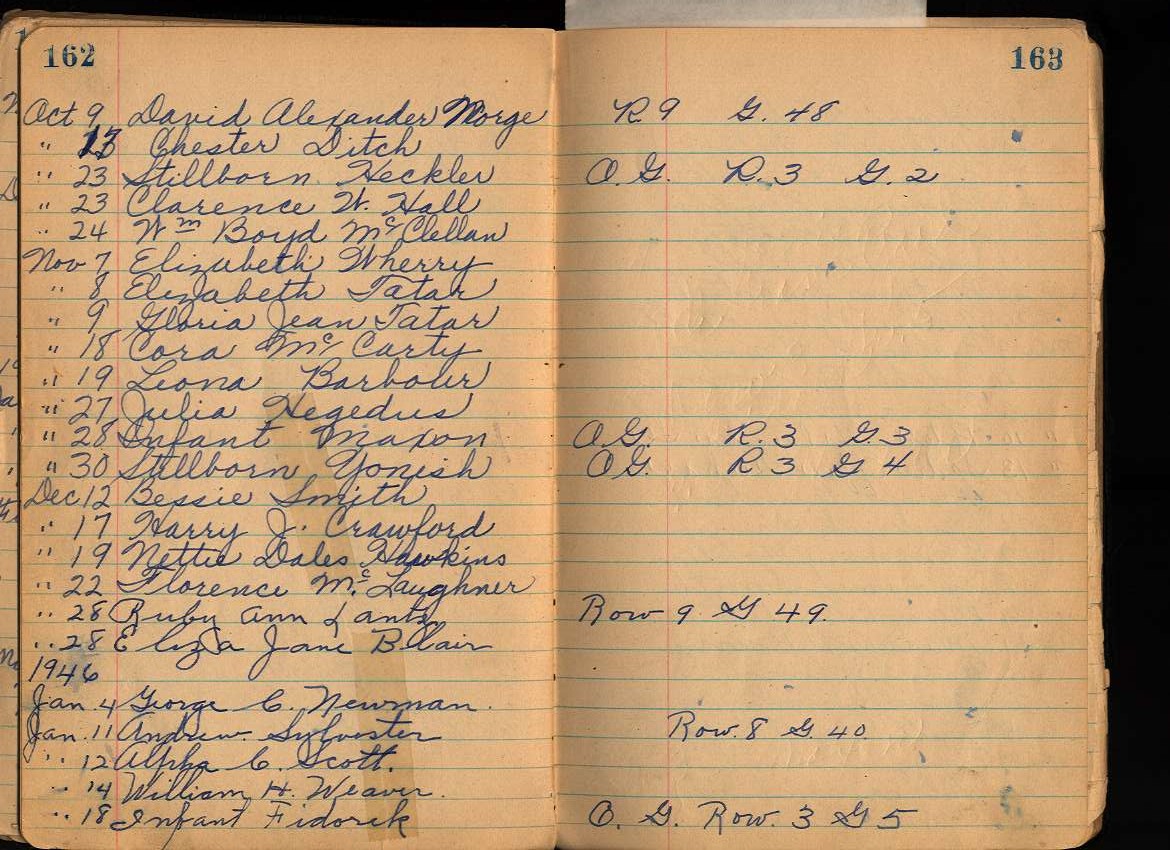 162
163
Oct 9 David Alexander Morge R 9 G. 48
" 13 Chester Ditch
" 23 Stillborn Heckler O. G. R. 3 G. 2
" 23 Clarence W. Hall
" 24 Wm Boyd McClellan
Nov 7 Elizabeth Wherry
" 8 Elizabeth Tatar
" 9 Gloria Jean Tatar
" 18 Cora Mc Carty
" 19 Leona Barbour
" 27 Julia Hegedus
" 28 Infant Maxon O G. R. 3 G. 3
" 30 Stillborn Yonish O G. R 3 G 4
Dec 12 Bessie Smith
" 17 Harry J. Crawford
" 19 Nettie Dales Hawkins
" 22 Florence Mc Laughner
" 28 Ruby Ann Lantz Row 9 G 49.
" 28 Eliza Jane Blair
1946
Jan. 4 George C. Newman.
Jan. 11 Andrew Sylvester Row. 8 G. 40.
" 12 Alpha C. Scott.
" 14 William H. Weaver.
" 18 Infant Fidorik O. G. Row. 3 G 5